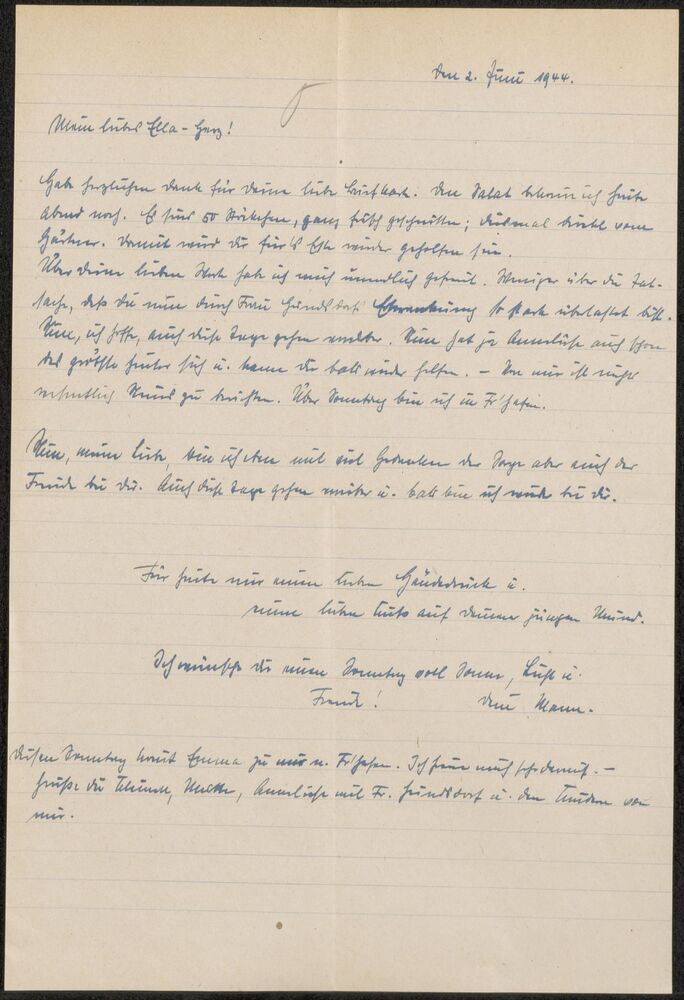 Den 2. Juni 1944.
Mein liebes Ella-Herz!
Hab herzlichen Dank für Deine liebe Briefkarte. Den Salat bekomme ich heute
Abend noch. Es sind 50 Stöckchen, ganz hübsch geschnitten; diesmal direkt vom
Gärtner. Damit wird Dir für's Erste wieder geholfen sein.
Über Deine lieben Worte hab ich mich unendlich gefreut. Weniger über die Tat-
sache, daß Du nun durch Frau Hundsdorfs Erkrankung so stark überlastet bist.
Nun, ich hoffe, auch diese Tage gehen vorüber. Nun hat ja Anneliese auch schon
das größte hinter sich u. kann Dir bald wieder helfen. - Von mir ist nichts
wesentlich Neues zu berichten. Über Sonntag bin ich in Fr'hafen.
Nun, meine Liebe, bin ich eben mit viel Gedanken der Sorge aber auch der
Freude bei Dir. Auch diese Tage gehen vorüber u. bald bin ich wieder bei Dir.
Für heute nur einen lieben Händedruck u.
einen lieben Kuß auf Deinen jungen Mund.
Ich wünsche Dir einen Sonntag voll Sonne, Luft u.
Freude! Dein Mann.
Diesen Sonntag kommt Emma zu mir n. Fr'hafen. Ich freue mich schon darauf. -
Grüße Du Mutter, Anneliese mit Fr. Hundsdorf u. den Kindern von
mir.